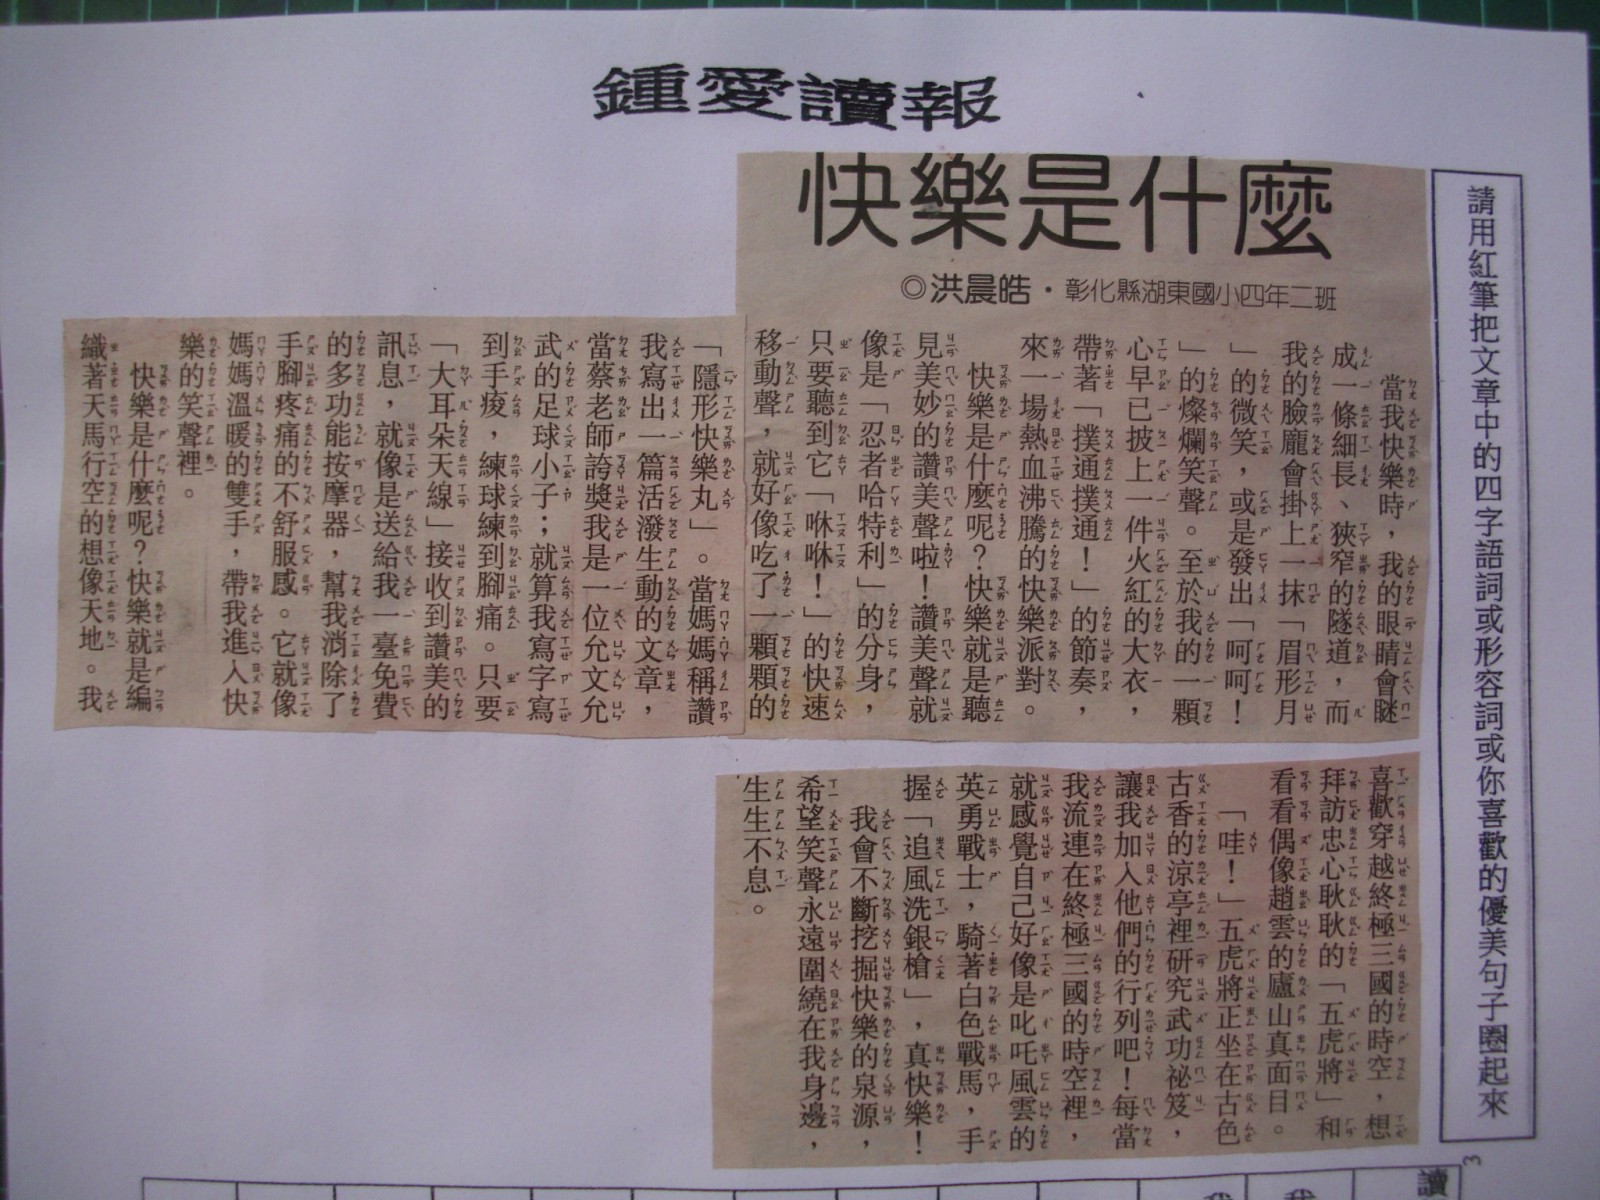 鍾愛讀報
請用紅筆把文章中的四字語詞或形容詞或你喜歡的優美句子圈起來
快樂是什麼
◎洪晨皓・彰化縣湖東國小四年二班
當我快樂時，我的眼睛會瞇
成一條細長、狹窄的隧道，而
我的臉龐會掛上一抹「眉形月
」的微笑，或是發出「呵呵！
」的燦爛笑聲。至於我的一顆
心早已披上一件火紅的大衣，
帶著「撲通撲通！」的節奏，
來一場熱血沸騰的快樂派對。
快樂是什麼呢？快樂就是聽
見美妙的讚美聲啦！讚美聲就
像是「忍者哈特利」的分身，
只要聽到它「咻咻！」的快速
移動聲，就好像吃了一顆顆的
「隱形快樂丸」。當媽媽稱讚
我寫出一篇活潑生動的文章，
當蔡老師誇獎我是一位允文允
武的足球小子；就算我寫字寫
到手痠，練球練到腳痛。只要
「大耳朵天線」接收到讚美的
訊息，就像是送給我一臺免費
的多功能按摩器，幫我消除了
手腳疼痛的不舒服感。它就像
媽媽溫暖的雙手，帶我進入快
樂的笑聲裡。
快樂是什麼呢？快樂就是編
織著天馬行空的想像天地。我
喜歡穿越終極三國的時空，想
拜訪忠心耿耿的「五虎將」和
看看偶像趙雲的廬山真面目。
「哇！」五虎將正坐在古色
古香的涼亭裡研究武功祕笈，
讓我加入他們的行列吧！每當
我流連在終極三國的時空裡，
就感覺自己好像是叱吒風雲的
英勇戰士，騎著白色戰馬，手
握「追風洗銀槍」，真快樂！
我會不斷挖掘快樂的泉源，
希望笑聲永遠圍繞在我身邊，
生生不息。
3
讀
我